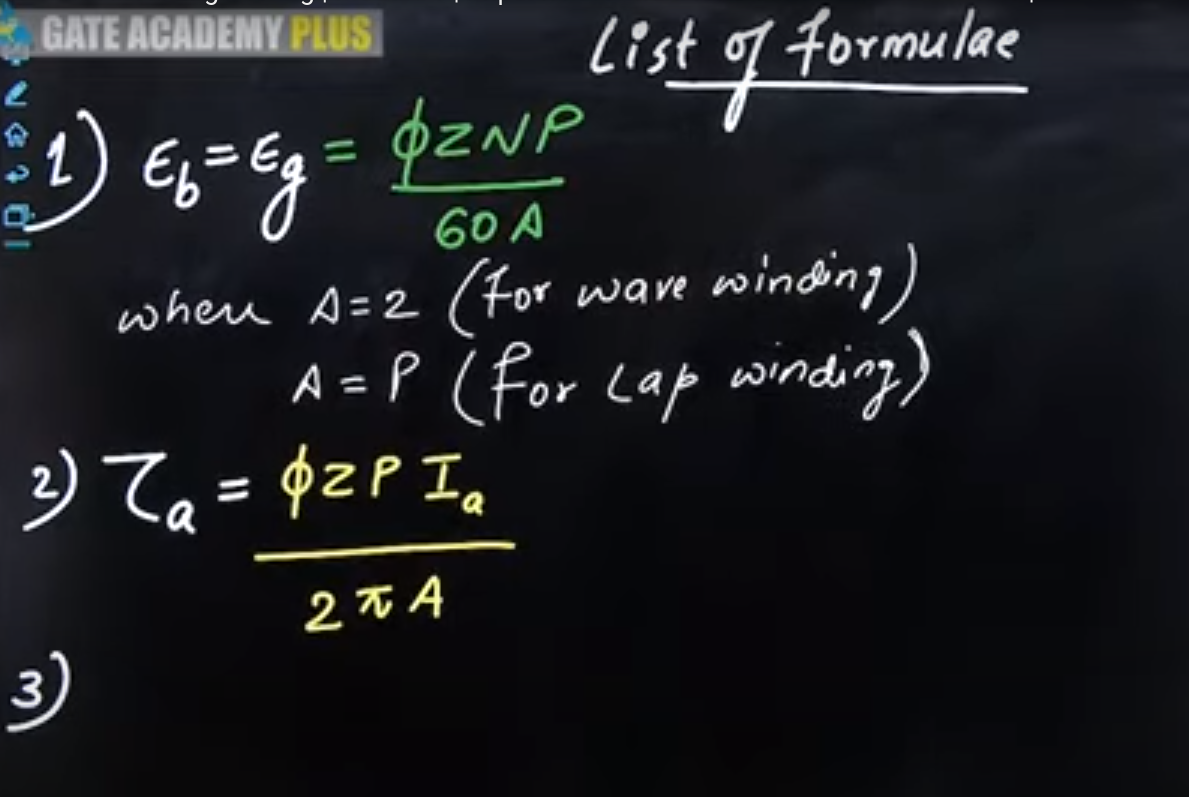 GATE ACADEMY PLUS
List of formulae
1) Eb = Eg = ϕZNP / 60 A
where A = 2 (for wave winding)
A = P (for Lap winding)
2) τa = ϕZP Ia / 2πA
3)